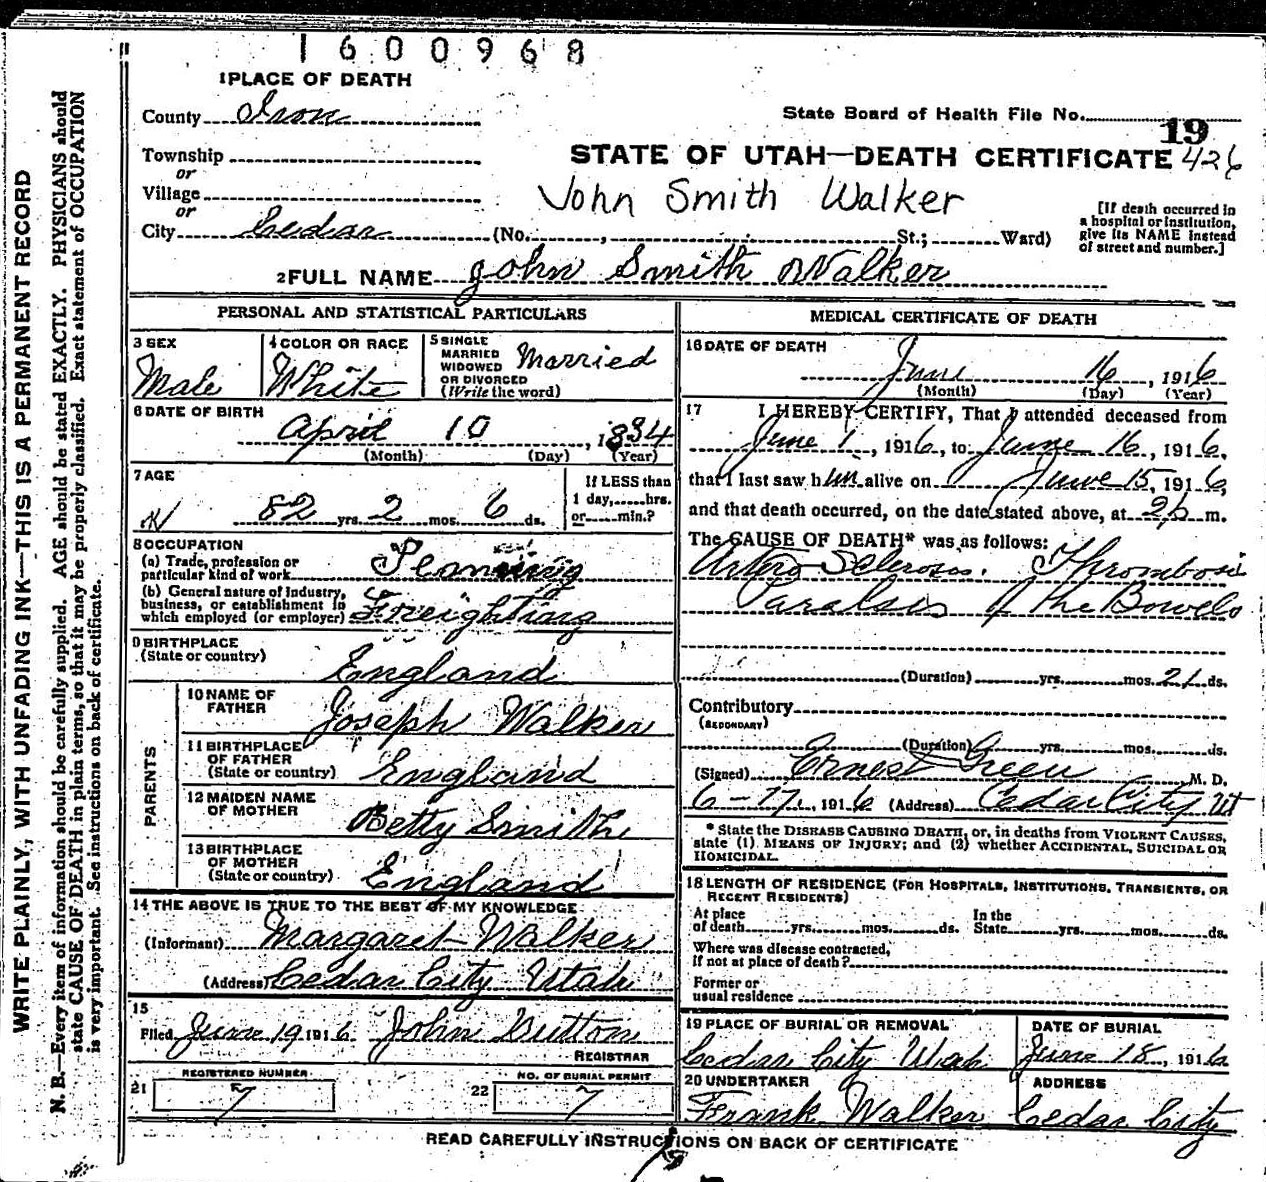 1600968
1 PLACE OF DEATH
County Iron
State Board of Health File No.
19
Township
or
STATE OF UTAH—DEATH CERTIFICATE 426
Village
or
John Smith Walker
[If death occurred in
a hospital or institution,
give its NAME instead
of street and number.]
City Cedar (No. , St.; Ward)
2 FULL NAME John Smith Walker
PERSONAL AND STATISTICAL PARTICULARS
3 SEX
Male
4 COLOR OR RACE
White
5 SINGLE
MARRIED
WIDOWED
OR DIVORCED
(Write the word)
Married
6 DATE OF BIRTH
April 10, 1834
(Month) (Day) (Year)
7 AGE
82 yrs. 2 mos. 6 ds.
If LESS than
1 day, hrs.
or min.?
8 OCCUPATION
(a) Trade, profession or
particular kind of work
(b) General nature of industry,
business, or establishment in
which employed (or employer) Freighting
9 BIRTHPLACE
(State or country)
England
PARENTS
10 NAME OF
FATHER
Joseph Walker
11 BIRTHPLACE
OF FATHER
(State or country)
England
12 MAIDEN NAME
OF MOTHER
Betty Smith
13 BIRTHPLACE
OF MOTHER
(State or country)
England
14 THE ABOVE IS TRUE TO THE BEST OF MY KNOWLEDGE
(Informant) Margaret Walker
(Address) Cedar City Utah
15
Filed June 19 1916 John Sutton
REGISTRAR
REGISTERED NUMBER
21 7
NO. OF BURIAL PERMIT
22 7
MEDICAL CERTIFICATE OF DEATH
16 DATE OF DEATH
June 16, 1916
(Month) (Day) (Year)
17 I HEREBY CERTIFY, That I attended deceased from
June 1, 1916, to June 16, 1916,
that I last saw him alive on June 15, 1916,
and that death occurred, on the date stated above, at 2 p m.
The CAUSE OF DEATH* was as follows:
Artero Sclerosis. Thrombosi
Paralsis of the Bowels
(Duration) yrs. mos. 21 ds.
Contributory
(SECONDARY)
(Duration) yrs. mos. ds.
(Signed) Ernest Green M. D.
6-17, 1916 (Address) Cedar City Ut
* State the DISEASE CAUSING DEATH, or, in deaths from VIOLENT CAUSES,
state (1) MEANS OF INJURY; and (2) whether ACCIDENTAL, SUICIDAL OR
HOMICIDAL.
18 LENGTH OF RESIDENCE (FOR HOSPITALS, INSTITUTIONS, TRANSIENTS, OR
RECENT RESIDENTS)
At place
of death yrs. mos. ds.
In the
State yrs. mos. ds.
Where was disease contracted,
If not at place of death?
Former or
usual residence
19 PLACE OF BURIAL OR REMOVAL
Cedar City Utah
DATE OF BURIAL
June 18, 1916
20 UNDERTAKER
Frank Walker
ADDRESS
Cedar City
READ CAREFULLY INSTRUCTIONS ON BACK OF CERTIFICATE
WRITE PLAINLY, WITH UNFADING INK—THIS IS A PERMANENT RECORD
N. B.—Every item of information should be carefully supplied. AGE should be stated EXACTLY. PHYSICIANS should
state CAUSE OF DEATH in plain terms, so that it may be properly classified. Exact statement of OCCUPATION
is very important. See instructions on back of certificate.